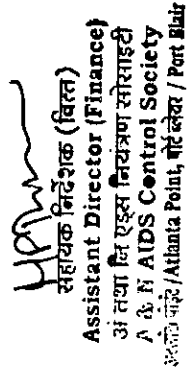 सहायक निर्देशक (वित्त)
Assistant Director (Finance)
अं तथा नि एड्स नियंत्रण सोसाइटी
A & N AIDS Control Society
पाइंट /Atlanta Point, पोर्ट ब्लेयर / Port Blair